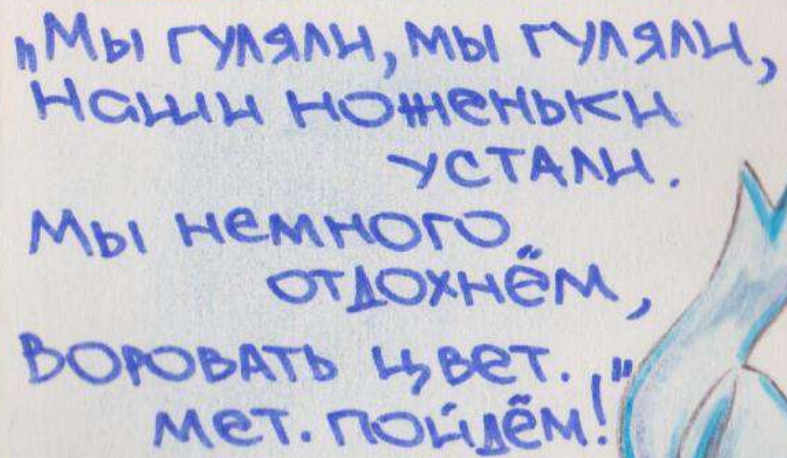 „Мы гуляли, мы гуляли,
наши ноженьки
устали.
Мы немного
отдохнём,
воровать цвет.
мет. пойдём!"